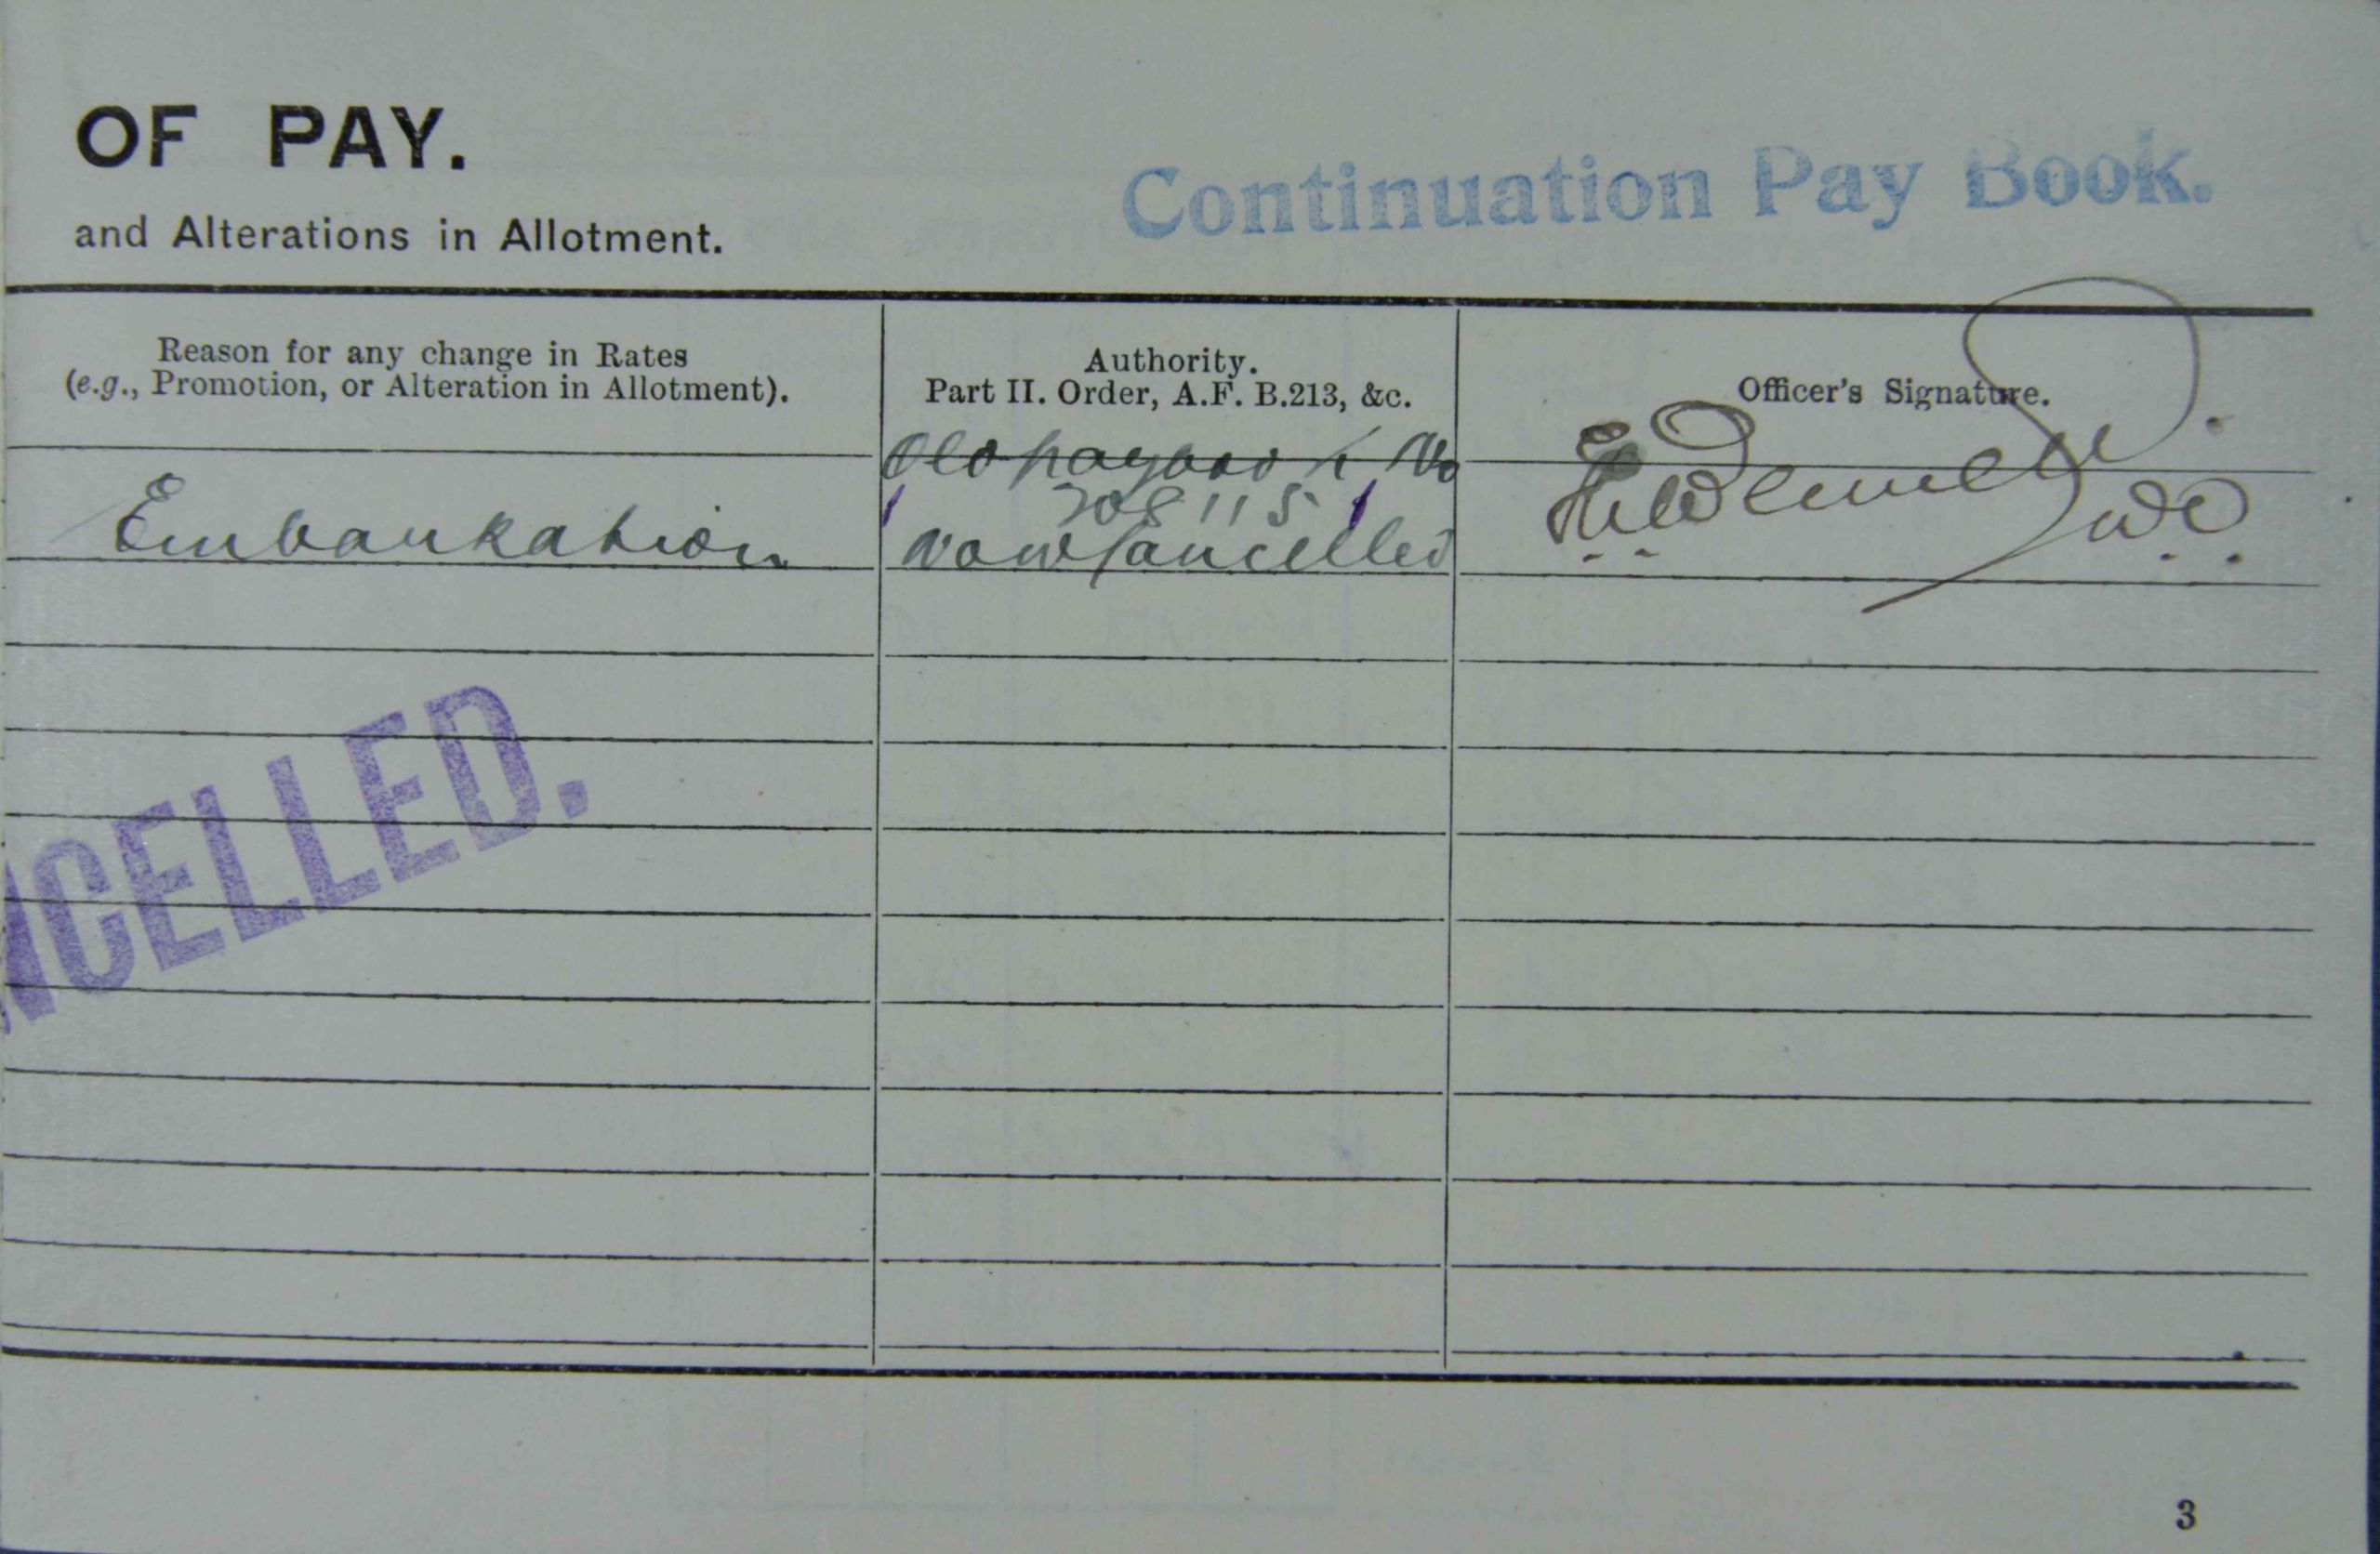 OF PAY.
Continuation Pay Book.
and Alterations in Allotment.
Reason for any change in Rates
(e.g., Promotion, or Alteration in Allotment).
Authority.
Part II. Order, A.F. B.213, &c.
Officer's Signature.
Old paybook No
208115
Embarkation
now Cancelled
NCELLED.
3